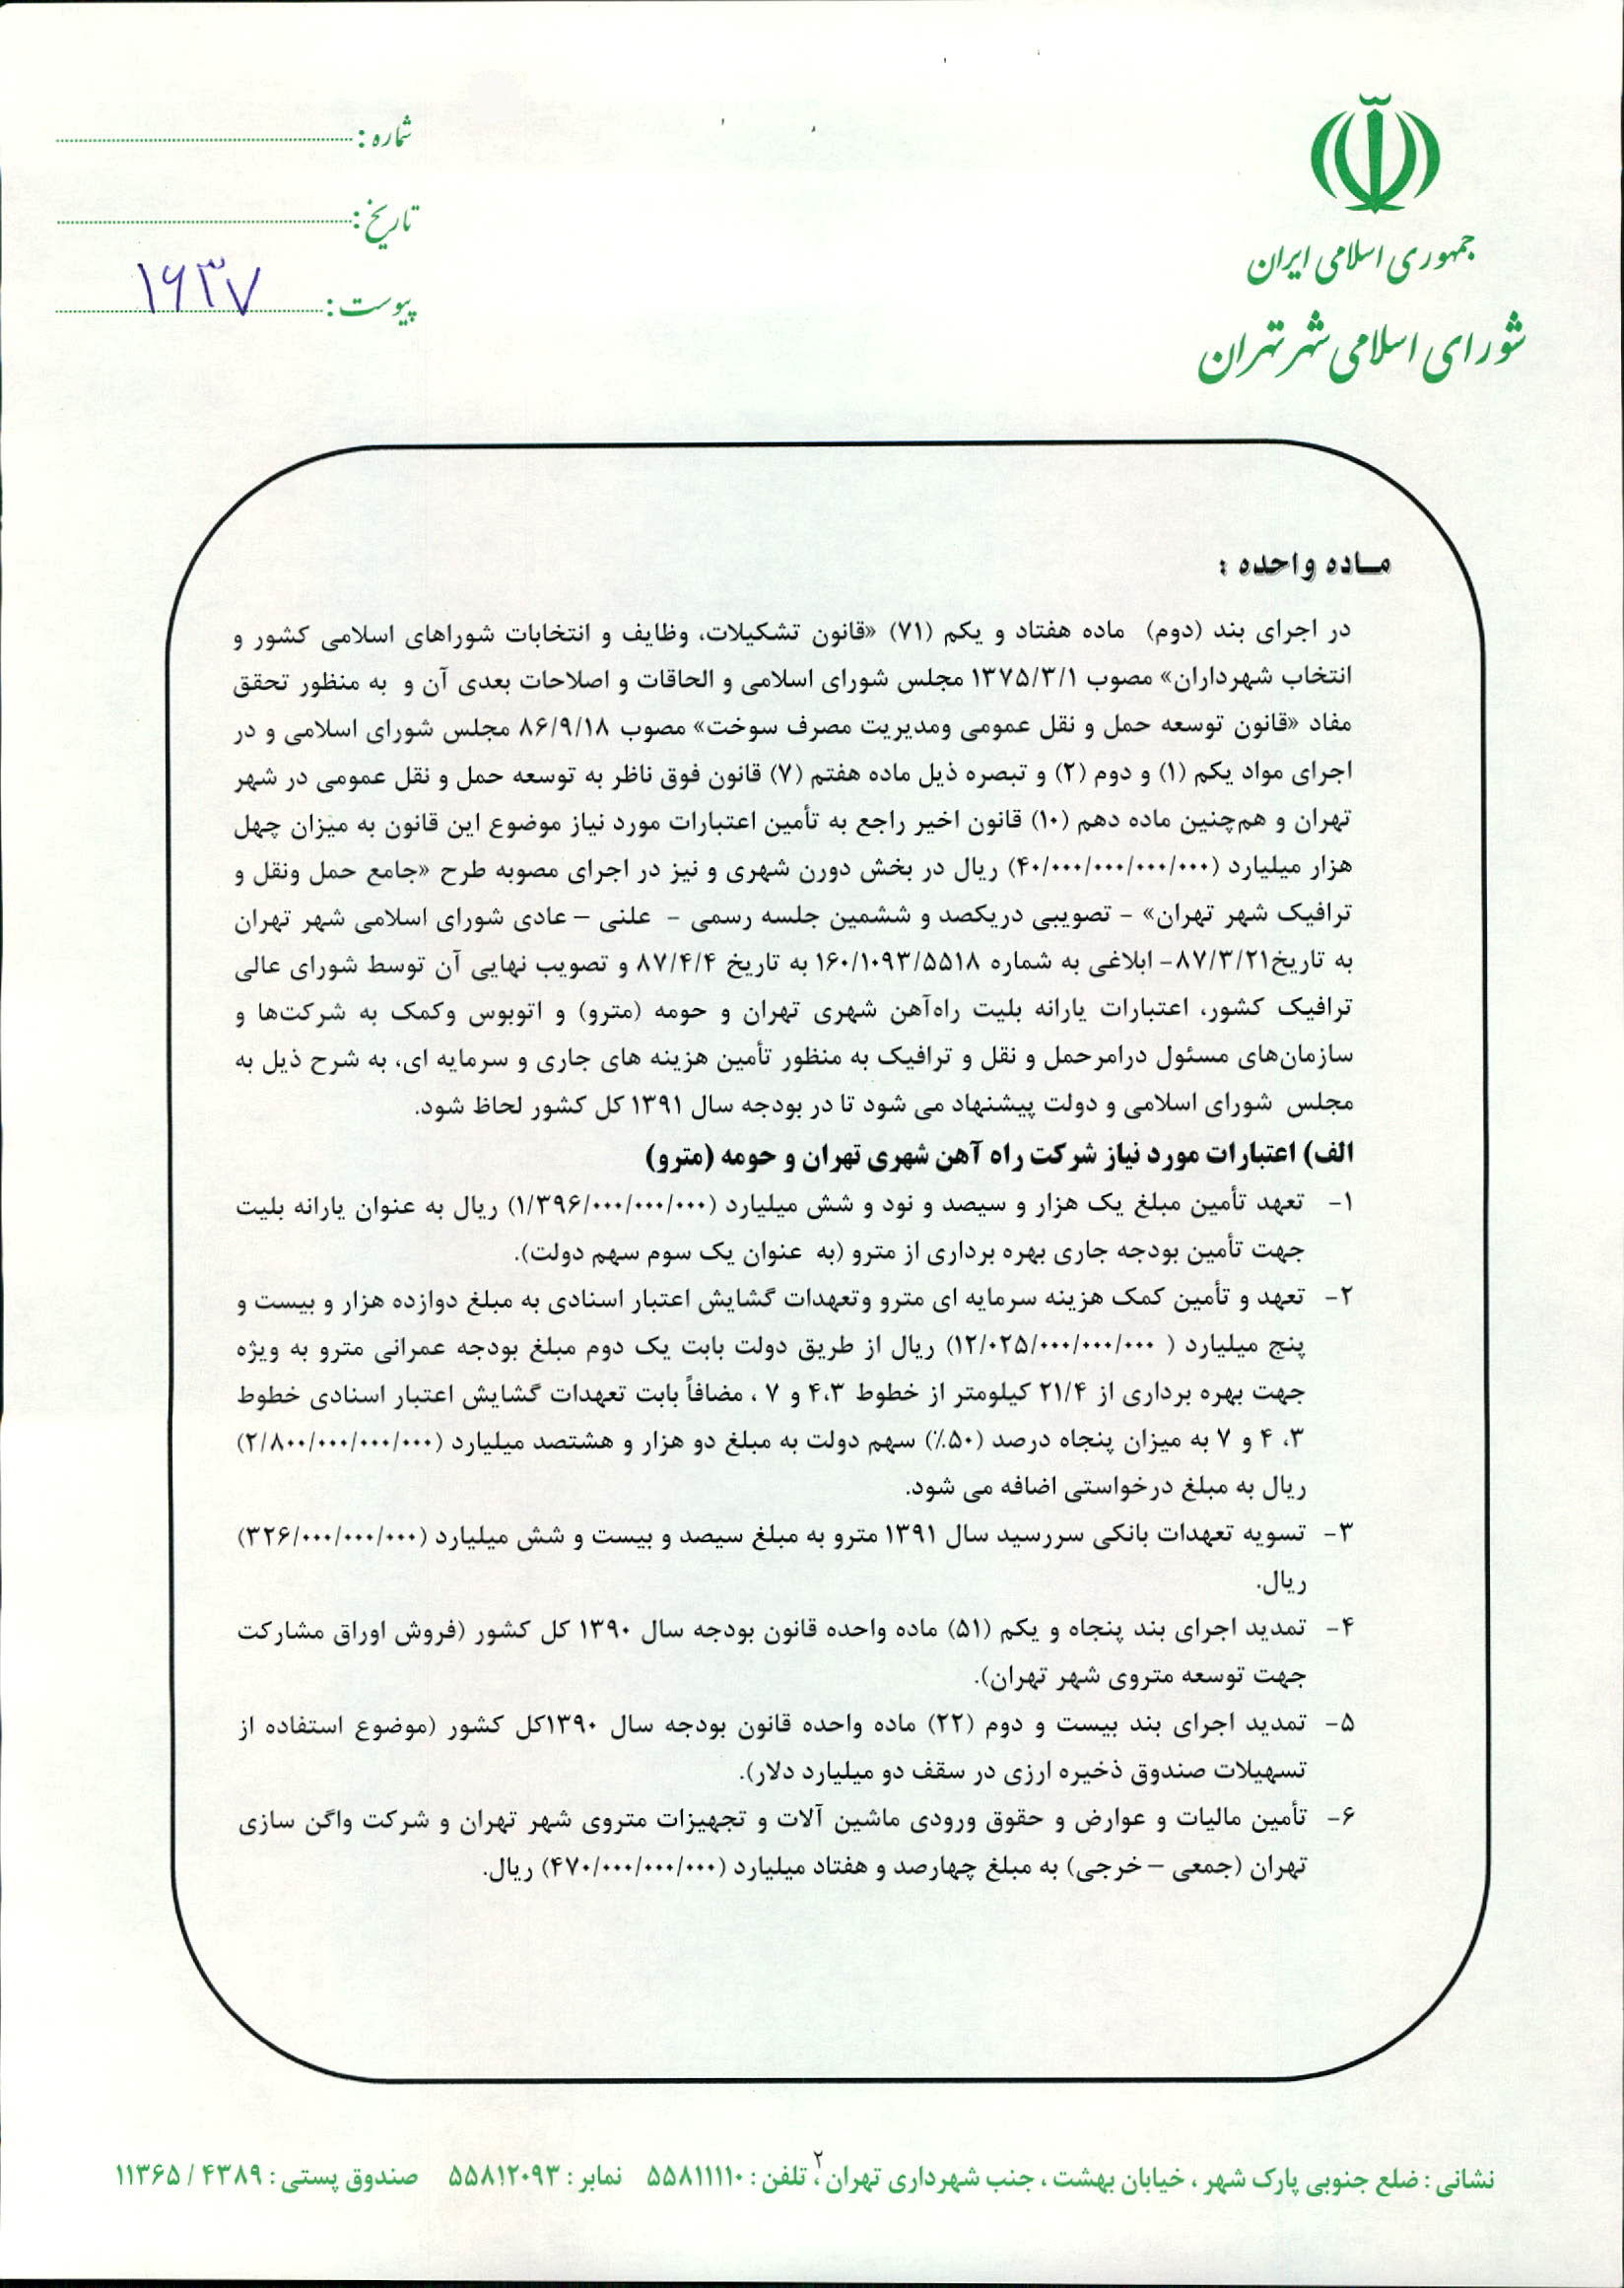 جمهوری اسلامی ایران
شورای اسلامی شهر تهران
شماره :
تاریخ :
پیوست : ۱۶۳۷
مـاده واحده :
در اجرای بند (دوم) ماده هفتاد و یکم (۷۱) «قانون تشکیلات، وظایف و انتخابات شوراهای اسلامی کشور و
انتخاب شهرداران» مصوب ۱۳۷۵/۳/۱ مجلس شورای اسلامی و الحاقات و اصلاحات بعدی آن و به منظور تحقق
مفاد «قانون توسعه حمل و نقل عمومی ومدیریت مصرف سوخت» مصوب ۸۶/۹/۱۸ مجلس شورای اسلامی و در
اجرای مواد یکم (۱) و دوم (۲) و تبصره ذیل ماده هفتم (۷) قانون فوق ناظر به توسعه حمل و نقل عمومی در شهر
تهران و هم‌چنین ماده دهم (۱۰) قانون اخیر راجع به تأمین اعتبارات مورد نیاز موضوع این قانون به میزان چهل
هزار میلیارد (۴۰/۰۰۰/۰۰۰/۰۰۰/۰۰۰) ریال در بخش دورن شهری و نیز در اجرای مصوبه طرح «جامع حمل ونقل و
ترافیک شهر تهران» - تصویبی دریکصد و ششمین جلسه رسمی - علنی – عادی شورای اسلامی شهر تهران
به تاریخ۸۷/۳/۲۱- ابلاغی به شماره ۱۶۰/۱۰۹۳/۵۵۱۸ به تاریخ ۸۷/۴/۴ و تصویب نهایی آن توسط شورای عالی
ترافیک کشور، اعتبارات یارانه بلیت راه‌آهن شهری تهران و حومه (مترو) و اتوبوس وکمک به شرکت‌ها و
سازمان‌های مسئول درامرحمل و نقل و ترافیک به منظور تأمین هزینه های جاری و سرمایه ای، به شرح ذیل به
مجلس شورای اسلامی و دولت پیشنهاد می شود تا در بودجه سال ۱۳۹۱ کل کشور لحاظ شود.
الف) اعتبارات مورد نیاز شرکت راه آهن شهری تهران و حومه (مترو)
۱- تعهد تأمین مبلغ یک هزار و سیصد و نود و شش میلیارد (۱/۳۹۶/۰۰۰/۰۰۰/۰۰۰) ریال به عنوان یارانه بلیت
جهت تأمین بودجه جاری بهره برداری از مترو (به عنوان یک سوم سهم دولت).
۲- تعهد و تأمین کمک هزینه سرمایه ای مترو وتعهدات گشایش اعتبار اسنادی به مبلغ دوازده هزار و بیست و
پنج میلیارد ( ۱۲/۰۲۵/۰۰۰/۰۰۰/۰۰۰) ریال از طریق دولت بابت یک دوم مبلغ بودجه عمرانی مترو به ویژه
جهت بهره برداری از ۲۱/۴ کیلومتر از خطوط ۴،۳ و ۷ ، مضافاً بابت تعهدات گشایش اعتبار اسنادی خطوط
۳، ۴ و ۷ به میزان پنجاه درصد (۵۰٪) سهم دولت به مبلغ دو هزار و هشتصد میلیارد (۲/۸۰۰/۰۰۰/۰۰۰/۰۰۰)
ریال به مبلغ درخواستی اضافه می شود.
۳- تسویه تعهدات بانکی سررسید سال ۱۳۹۱ مترو به مبلغ سیصد و بیست و شش میلیارد (۳۲۶/۰۰۰/۰۰۰/۰۰۰)
ریال.
۴- تمدید اجرای بند پنجاه و یکم (۵۱) ماده واحده قانون بودجه سال ۱۳۹۰ کل کشور (فروش اوراق مشارکت
جهت توسعه متروی شهر تهران).
۵- تمدید اجرای بند بیست و دوم (۲۲) ماده واحده قانون بودجه سال ۱۳۹۰کل کشور (موضوع استفاده از
تسهیلات صندوق ذخیره ارزی در سقف دو میلیارد دلار).
۶- تأمین مالیات و عوارض و حقوق ورودی ماشین آلات و تجهیزات متروی شهر تهران و شرکت واگن سازی
تهران (جمعی – خرجی) به مبلغ چهارصد و هفتاد میلیارد (۴۷۰/۰۰۰/۰۰۰/۰۰۰) ریال.
۲
نشانی : ضلع جنوبی پارک شهر ، خیابان بهشت ، جنب شهرداری تهران ، تلفن : ۵۵۸۱۱۱۱۰ نمابر : ۵۵۸۱۲۰۹۳ صندوق پستی : ۴۳۸۹ / ۱۱۳۶۵